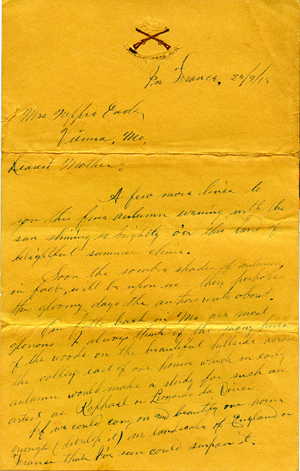 In France, 22/9/18
Mrs Neffie Cook
Vienna, Mo.
Dearest Mother:
A few more lines to
you this fine autumn evening with the
sun shining so brightly o'er this land of
delightful summer clime.
Soon the somber shade of autumn,
in fact, will be upon us — then perhaps
the gloomy days the authors write about.
Our falls back in Mo. are most
glorious. I always think of the many hues
of the woods on the beautiful hillside across
the valley east of our house which in early
autumn would make a study for such an
artist as Raphael or Leonardo da Vinci.
If we could carry on and beautify our home
enough (develop it) as landscape of England or
France their few scenes could surpass it.